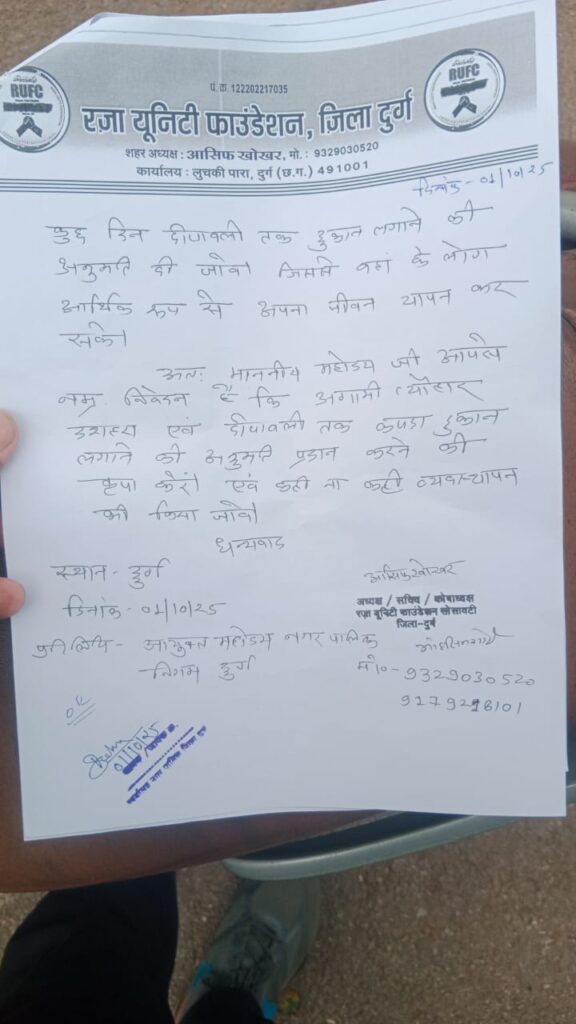 RUFC
RUFC
पं. क्र. 122202217035
रज़ा यूनिटी फाउंडेशन, जिला दुर्ग
शहर अध्यक्ष : आसिफ खोखर, मो. : 9329030520
कार्यालय : लुचकी पारा, दुर्ग (छ.ग.) 491001
दिनांक - 01/10/25
कुछ दिन दीपावली तक दुकान लगाने की
अनुमति दी जावे। जिससे वहां के लोग
आर्थिक रूप से अपना जीवन यापन कर
सके।
अतः माननीय महोदय जी आपसे
नम्र निवेदन है कि अगामी त्यौहार
दशहरा एवं दीपावली तक कपडा दुकान
लगाने की अनुमति प्रदान करने की
कृपा करें। एवं कही ना कही व्यवस्थापन
भी किया जावे।
धन्यवाद
स्थान - दुर्ग
दिनांक - 01/10/25
आसिफ खोखर
अध्यक्ष / सचिव / कोषाध्यक्ष
रज़ा यूनिटी फाउंडेशन सोसायटी
जिला-दुर्ग
प्रतिलिपि - आयुक्त महोदय नगर पालिक
निगम दुर्ग
मो० - 9329030520
01/10/25